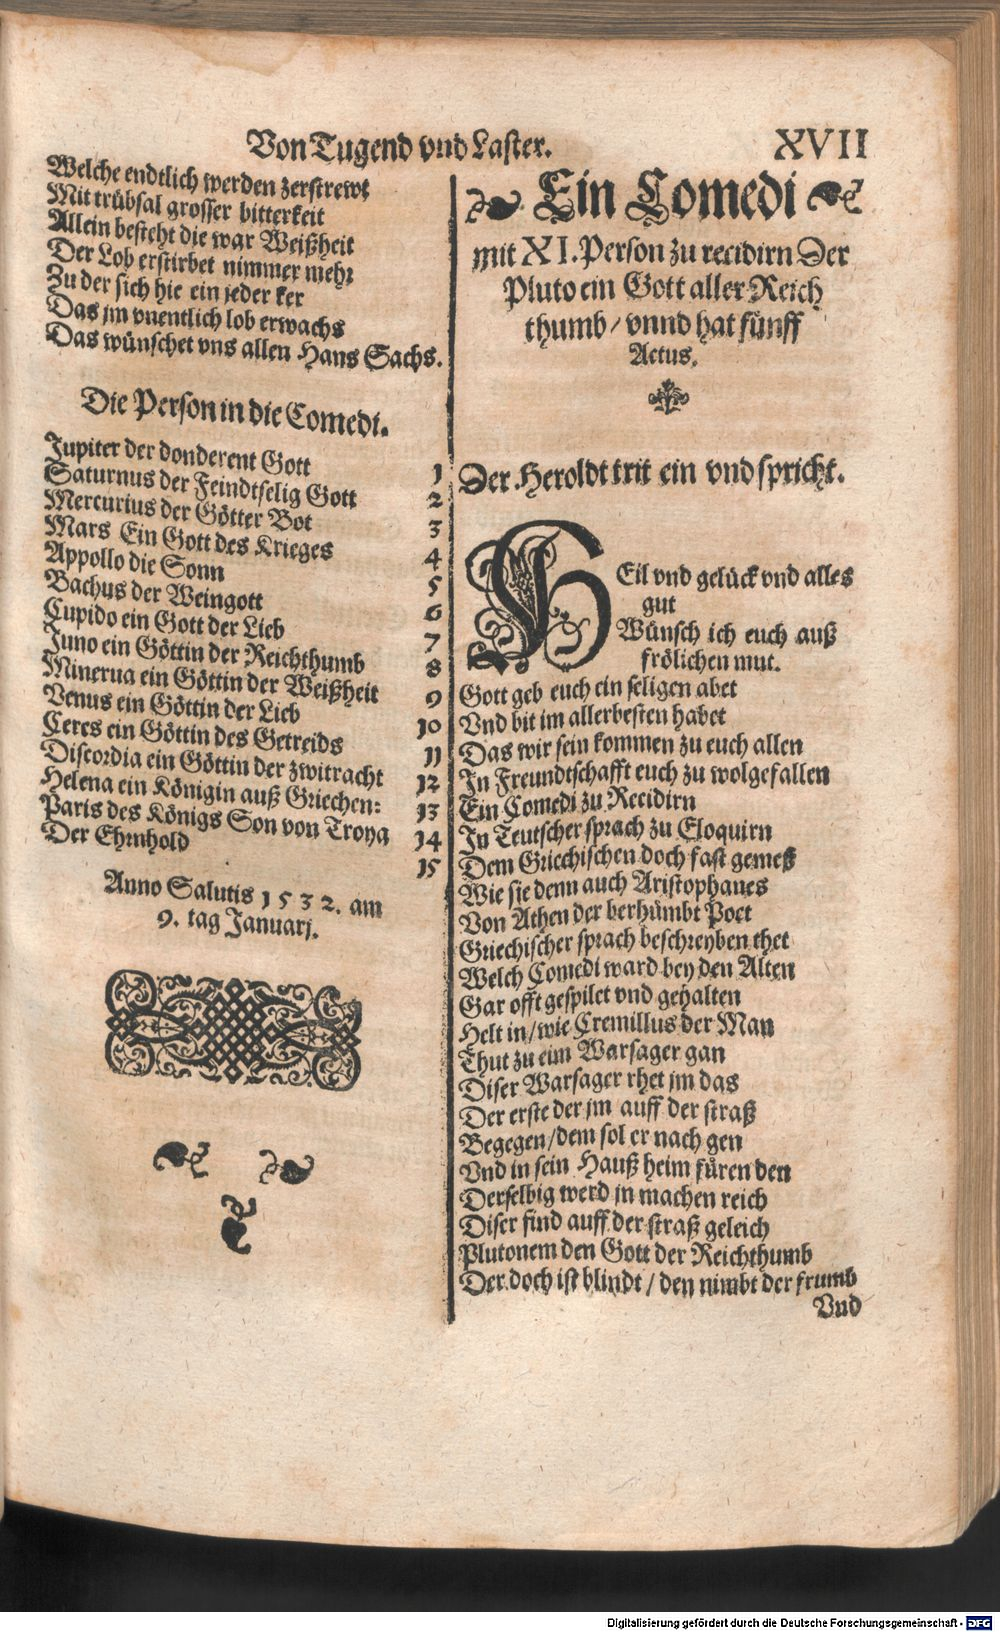 Von Tugend vnd Laster. XVII
Welche endtlich werden zerstrewt
Mit trübsal grosser bitterkeit
Allein besteht die war Weißheit
Der Lob erstirbet nimmer mehr
Zu der sich hie ein jeder ker
Das jm vnentlich lob erwachs
Das wünschet vns allen Hans Sachs.
Die Person in die Comedi.
Jupiter der donderent Gott 1
Saturnus der Feindtselig Gott 2
Mercurius der Götter Bot 3
Mars Ein Gott des Krieges 4
Appollo die Sonn 5
Bachus der Weingott 6
Cupido ein Gott der Lieb 7
Juno ein Göttin der Reichthumb 8
Minerua ein Göttin der Weißheit 9
Venus ein Göttin der Lieb 10
Ceres ein Göttin des Getreids 11
Discordia ein Göttin der zwitracht 12
Helena ein Königin auß Griechen: 13
Paris des Königs Son von Troya 14
Der Ehrnhold 15
Anno Salutis 1532. am
9. tag Januarj.
Ein Comedi
mit XI. Person zu recidirn Der
Pluto ein Gott aller Reich
thumb / vnnd hat fünff
Actus.
Der Heroldt trit ein vnd spricht.
HEil vnd gelück vnd alles
gut
Wünsch ich euch auß
frölichen mut.
Gott geb euch ein seligen abet
Vnd bit im allerbesten habet
Das wir sein kommen zu euch allen
In Freundtschafft euch zu wolgefallen
Ein Comedi zu Recidirn
In Teutscher sprach zu Eloquirn
Dem Griechischen doch fast gemeß
Wie sie denn auch Aristophanes
Von Athen der berhümbt Poet
Griechischer sprach beschreyben thet
Welch Comedi ward bey den Alten
Gar offt gespilet vnd gehalten
Helt in / wie Cremillus der Man
Thut zu eim Warsager gan
Diser Warsager rhet jm das
Der erste der jm auff der straß
Begegen / dem sol er nach gen
Vnd in sein Hauß heim füren den
Derselbig werd jn machen reich
Diser find auff der straß geleich
Plutonem den Gott der Reichthumb
Der doch ist blindt / den nimbt der frumb
Vnd
Digitalisierung gefördert durch die Deutsche Forschungsgemeinschaft - DFG